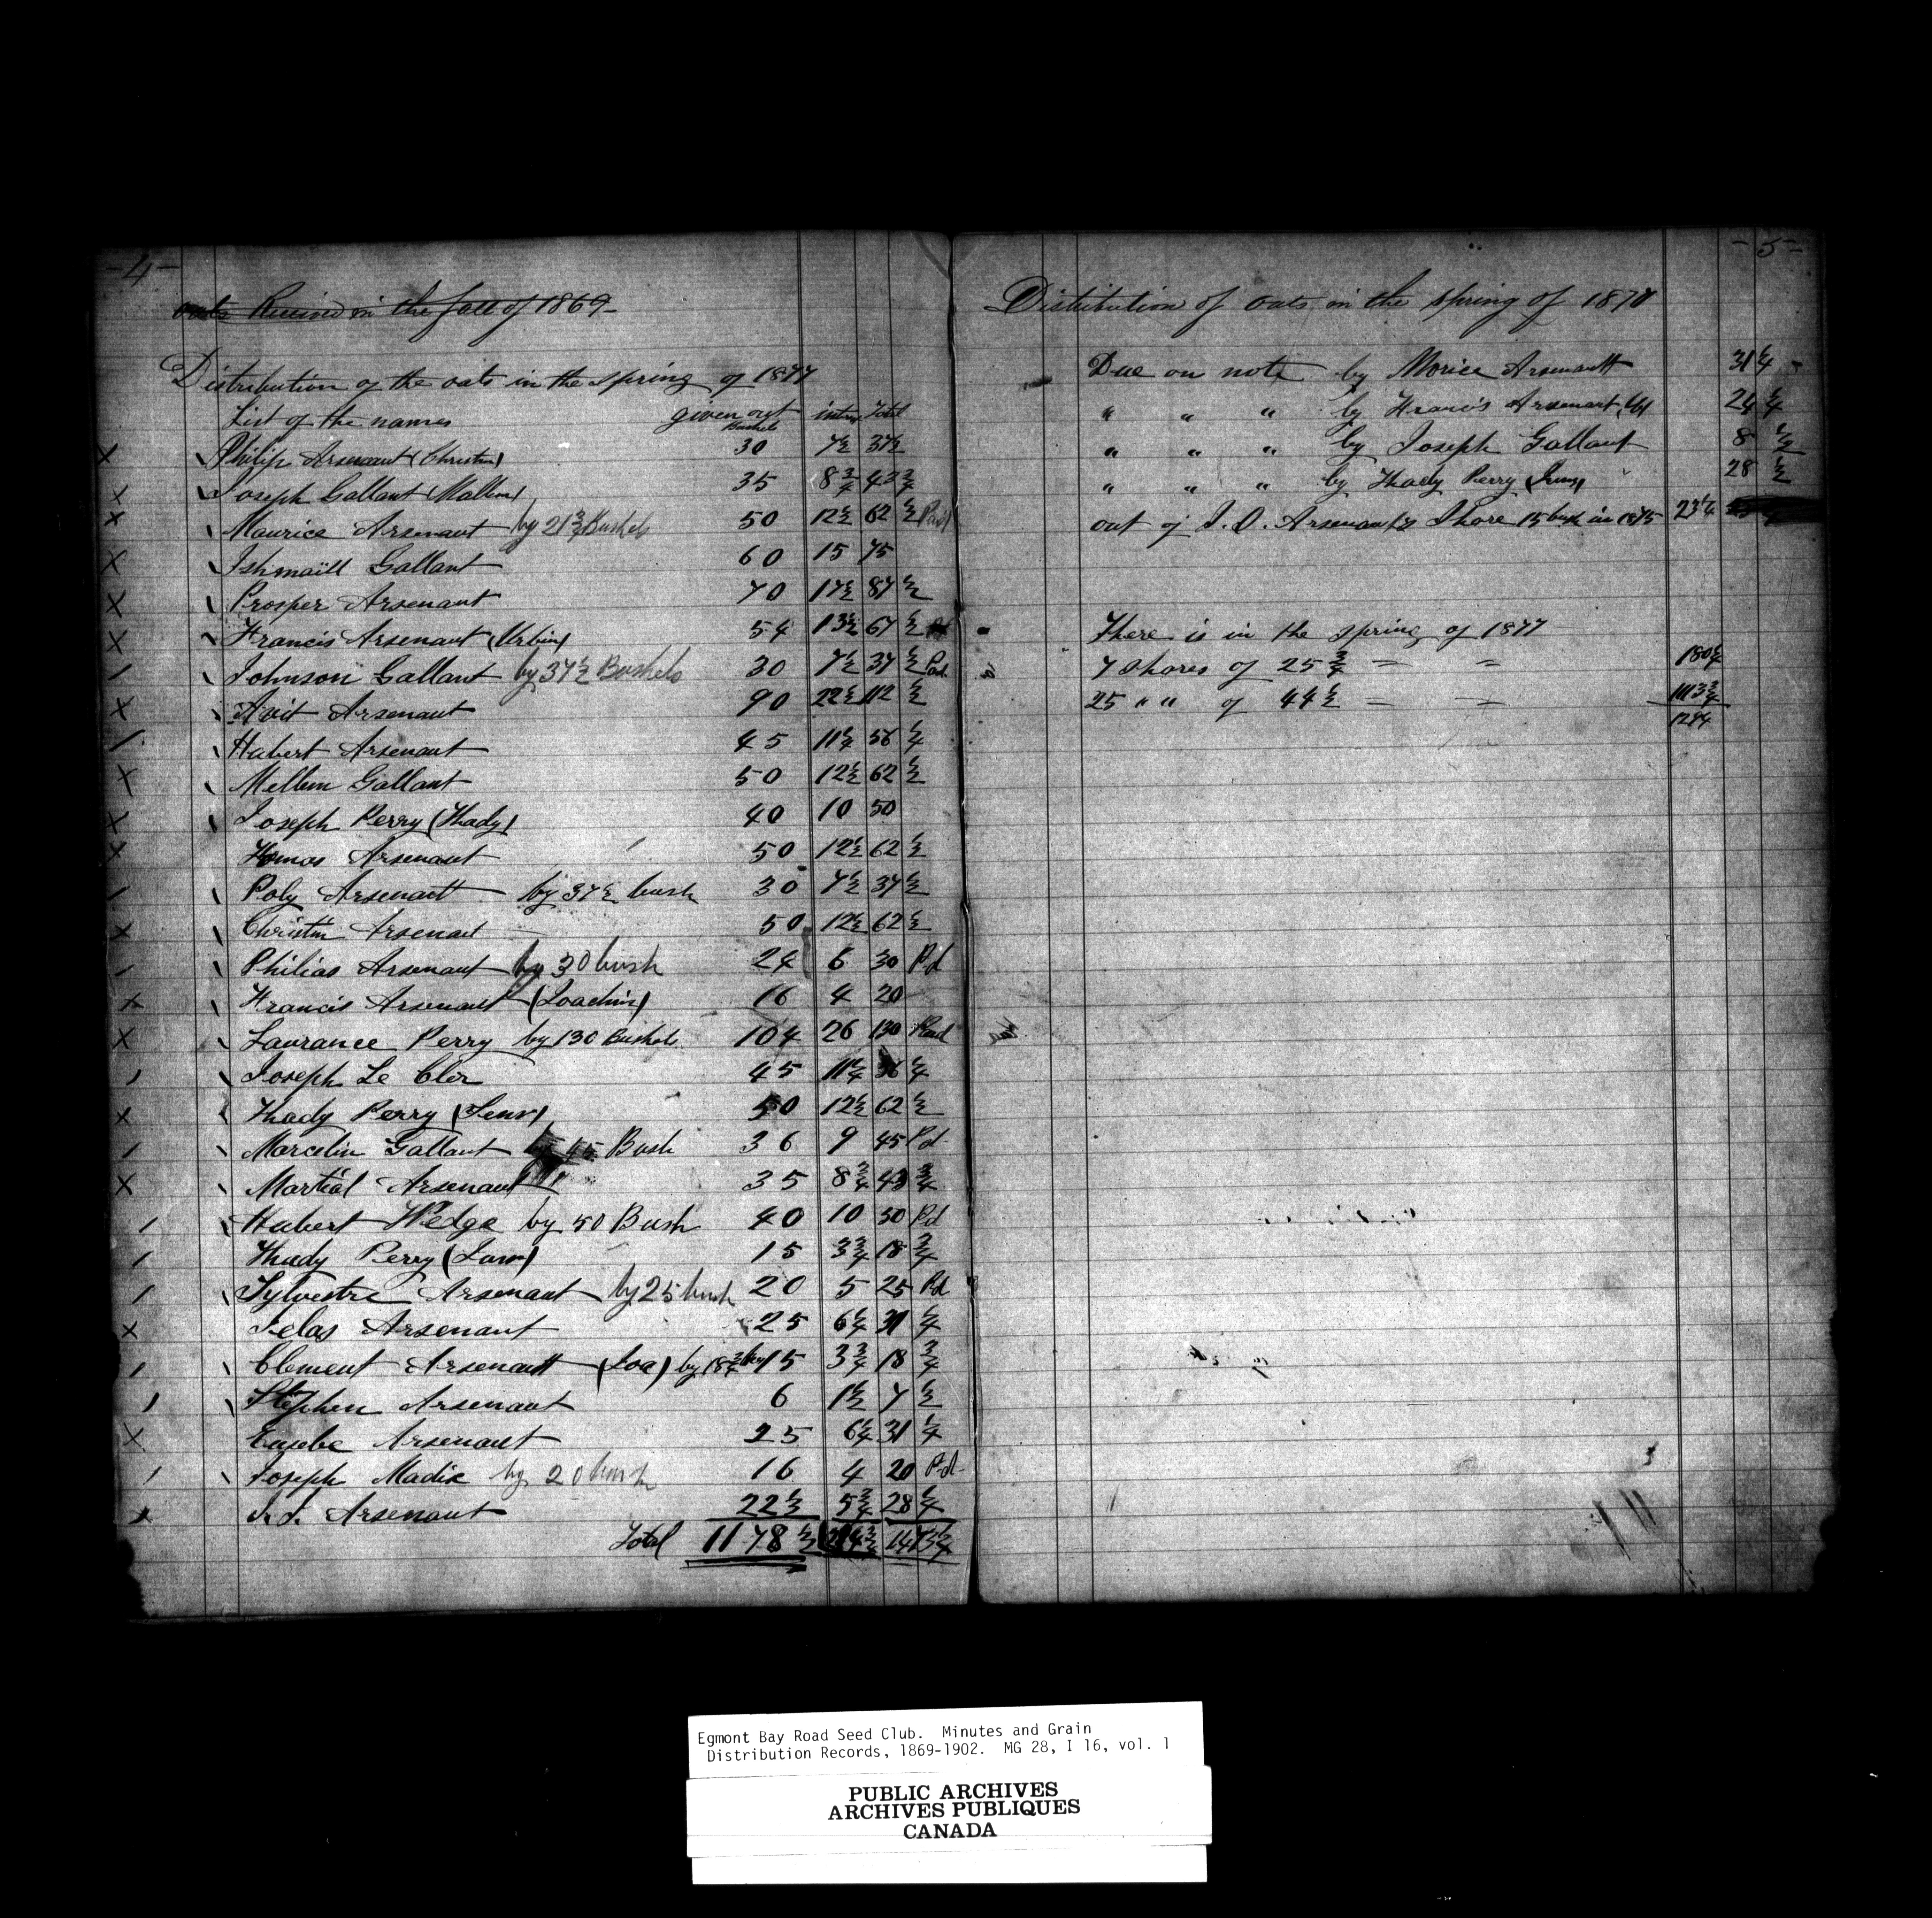 -4-
oats Received in the fall of 1869-
Distribution of the oats in the spring of 1877
List of the names given out Bushels intres Total
X Philip Arsenaut (Christin) 30 7½ 37½
X Joseph Gallant (Mallem) 35 8¾ 43¾
X Maurice Arsenaut by 21¾ Bushels 50 12½ 62½ Paid
X Ishmaill Gallant 60 15 75
X Prosper Arsenaut 70 17½ 87½
X Francis Arsenaut (Urbin) 54 13½ 67½
/ Johnson Gallant by 37½ Bushels 30 7½ 37½ Paid
X Avit Arsenaut 90 22½ 112½
/ Hubert Arsenaut 45 11¼ 56¼
X Mellem Gallant 50 12½ 62½
X Joseph Perry (Thady) 40 10 50
X Thomas Arsenaut 50 12½ 62½
/ Poly Arsenault by 37½ bush 30 7½ 37½
X Christin Arsenaut 50 12½ 62½
/ Philias Arsenaut by 30 bush 24 6 30 Pd
X Francis Arsenault (Joachim) 16 4 20
X Laurance Perry by 130 Bushels 104 26 130 Paid
/ Joseph Le Cler 45 11¼ 56¼
X Thady Perry (Senr) 50 12½ 62½
/ Marcelin Gallant 45 Bush 36 9 45 Pd
X Martial Arsenaut 35 8¾ 43¾
/ Hubert Wedge by 50 Bush 40 10 50 Pd
/ Thady Perry (Law) 15 3¾ 18¾
/ Sylvestre Arsenaut by 25 bush 20 5 25 Pd
X Jelas Arsenaut 25 6¼ 31¼
/ Clement Arsenault (Joa) by 18¾ 15 3¾ 18¾
/ Stephen Arsenaut 6 1½ 7½
X Eusebe Arsenault 25 6¼ 31¼
/ Joseph Madix by 20 bush 16 4 20 Pd
J. J. Arsenaut 22½ 5¾ 28¼
Total 1178½ 294¾ 1473¼
-5-
Distribution of oats in the spring of 1870
Due on note by Morice Arsenault 31¼ -
" " " by Francis Arsenart 24¼
" " " by Joseph Gallant 8½
" " " by Thady Perry (Juny) 28½
out of J. O. Arsenault's Share 15 bush in 1875 23¼
There is in the spring of 1877
7 shares of 25¾ = = 180¼
25 " " of 44½ = = 1113¾
1294
Egmont Bay Road Seed Club. Minutes and Grain
Distribution Records, 1869-1902. MG 28, I 16, vol. 1
PUBLIC ARCHIVES
ARCHIVES PUBLIQUES
CANADA